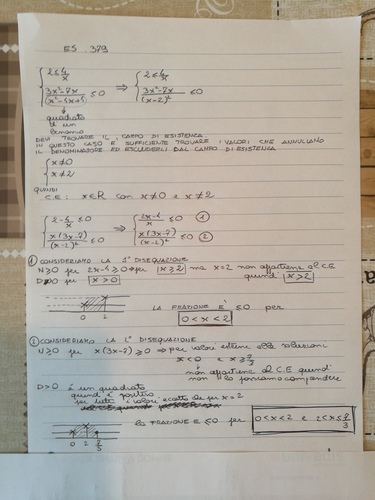 ES. 379
{ 2 ≤ 4/x   (3x²-7x)/(x²-4x+4) ≤ 0   ⇒   { 2 ≤ 4/x   (3x²-7x)/(x-2)² ≤ 0
quadrato
di un
binomio
DEVI TROVARE IL CAMPO DI ESISTENZA
IN QUESTO CASO È SUFFICIENTE TROVARE I VALORI CHE ANNULLANO
IL DENOMINATORE ED ESCLUDERLI DAL CAMPO DI ESISTENZA
{ x≠0
x≠2
QUINDI
C.E: x∈R con x≠0 e x≠2
{ 2-4/x ≤ 0   x(3x-7)/(x-2)² ≤ 0   ⇒   { (2x-4)/x ≤ 0 ①   x(3x-7)/(x-2)² ≤ 0 ②
① CONSIDERIAMO LA 1° DISEQUAZIONE
N≥0 per 2x-4≥0 ⇒ per x≥2 ma x=2 non appartiene al C.E
D>0 per x>0 quindi x>2
0 2
LA FRAZIONE È ≤0 PER
0<x<2
② CONSIDERIAMO LA 2° DISEQUAZIONE
N≥0 per x(3x-7)≥0 ⇒ per valori esterni alle soluzioni
x<0 e x≥7/3
non appartiene al C.E quindi
non lo facciamo comprendere
D>0 è un quadrato
quindi è positivo
per tutti i valori eccetto che per x=2
0 2 7/3
LA FRAZIONE È ≤0 per 0<x<2 e 2<x≤7/3